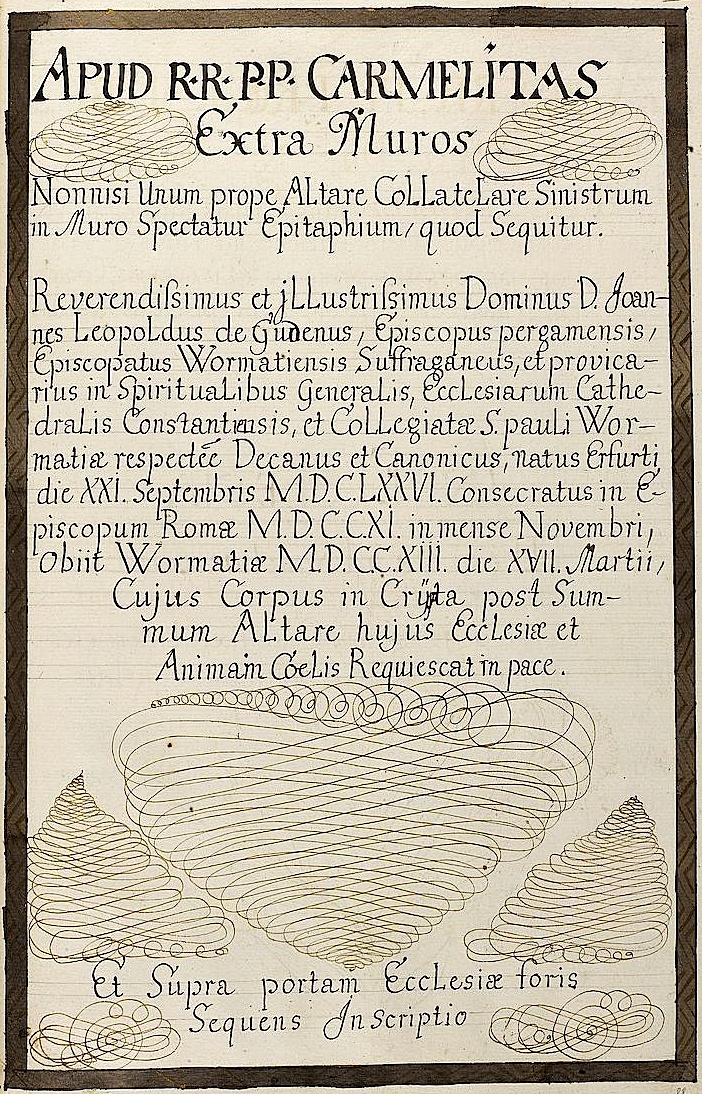 APUD R·R· P·P· CARMELITAS
Extra Muros
Nonnisi Unum prope ALtare CoLLateLare Sinistrum
in Muro Spectatur Epitaphium, quod Sequitur.
Reverendiſsimus et jLLustriſsimus Dominus D. Joan-
nes LeopoLdus de Gudenus, Episcopus pergamensis,
Episcopatus Wormatiensis Suffraganeus, et provica-
rius in SpirituaLibus GeneraLis, EccLesiarum Cathe-
draLis Constantiensis, et CoLLegiatæ S. pauLi Wor-
matiæ respectéé Decanus et Canonicus, natus Erfurti
die XXI. Septembris M.D.C.LXXVI. Consecratus in E-
piscopum Romæ M.D.C.CXI. in mense Novembri,
Obiit Wormatiæ M.D.CC.XIII. die XVII. Martii,
Cujus Corpus in Crÿpta post Sum-
mum ALtare hujus EccLesiæ et
Animam CoeLis Requiescat in pace.
Et Supra portam EccLesiæ foris
Sequens Inscriptio